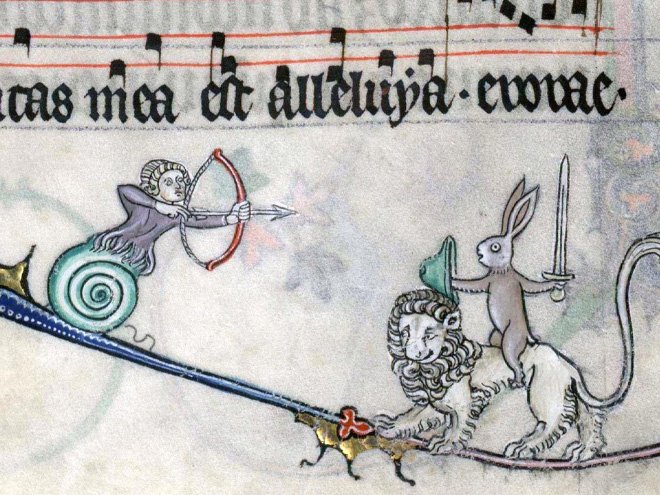 itas mea est alleluya · evovae ·